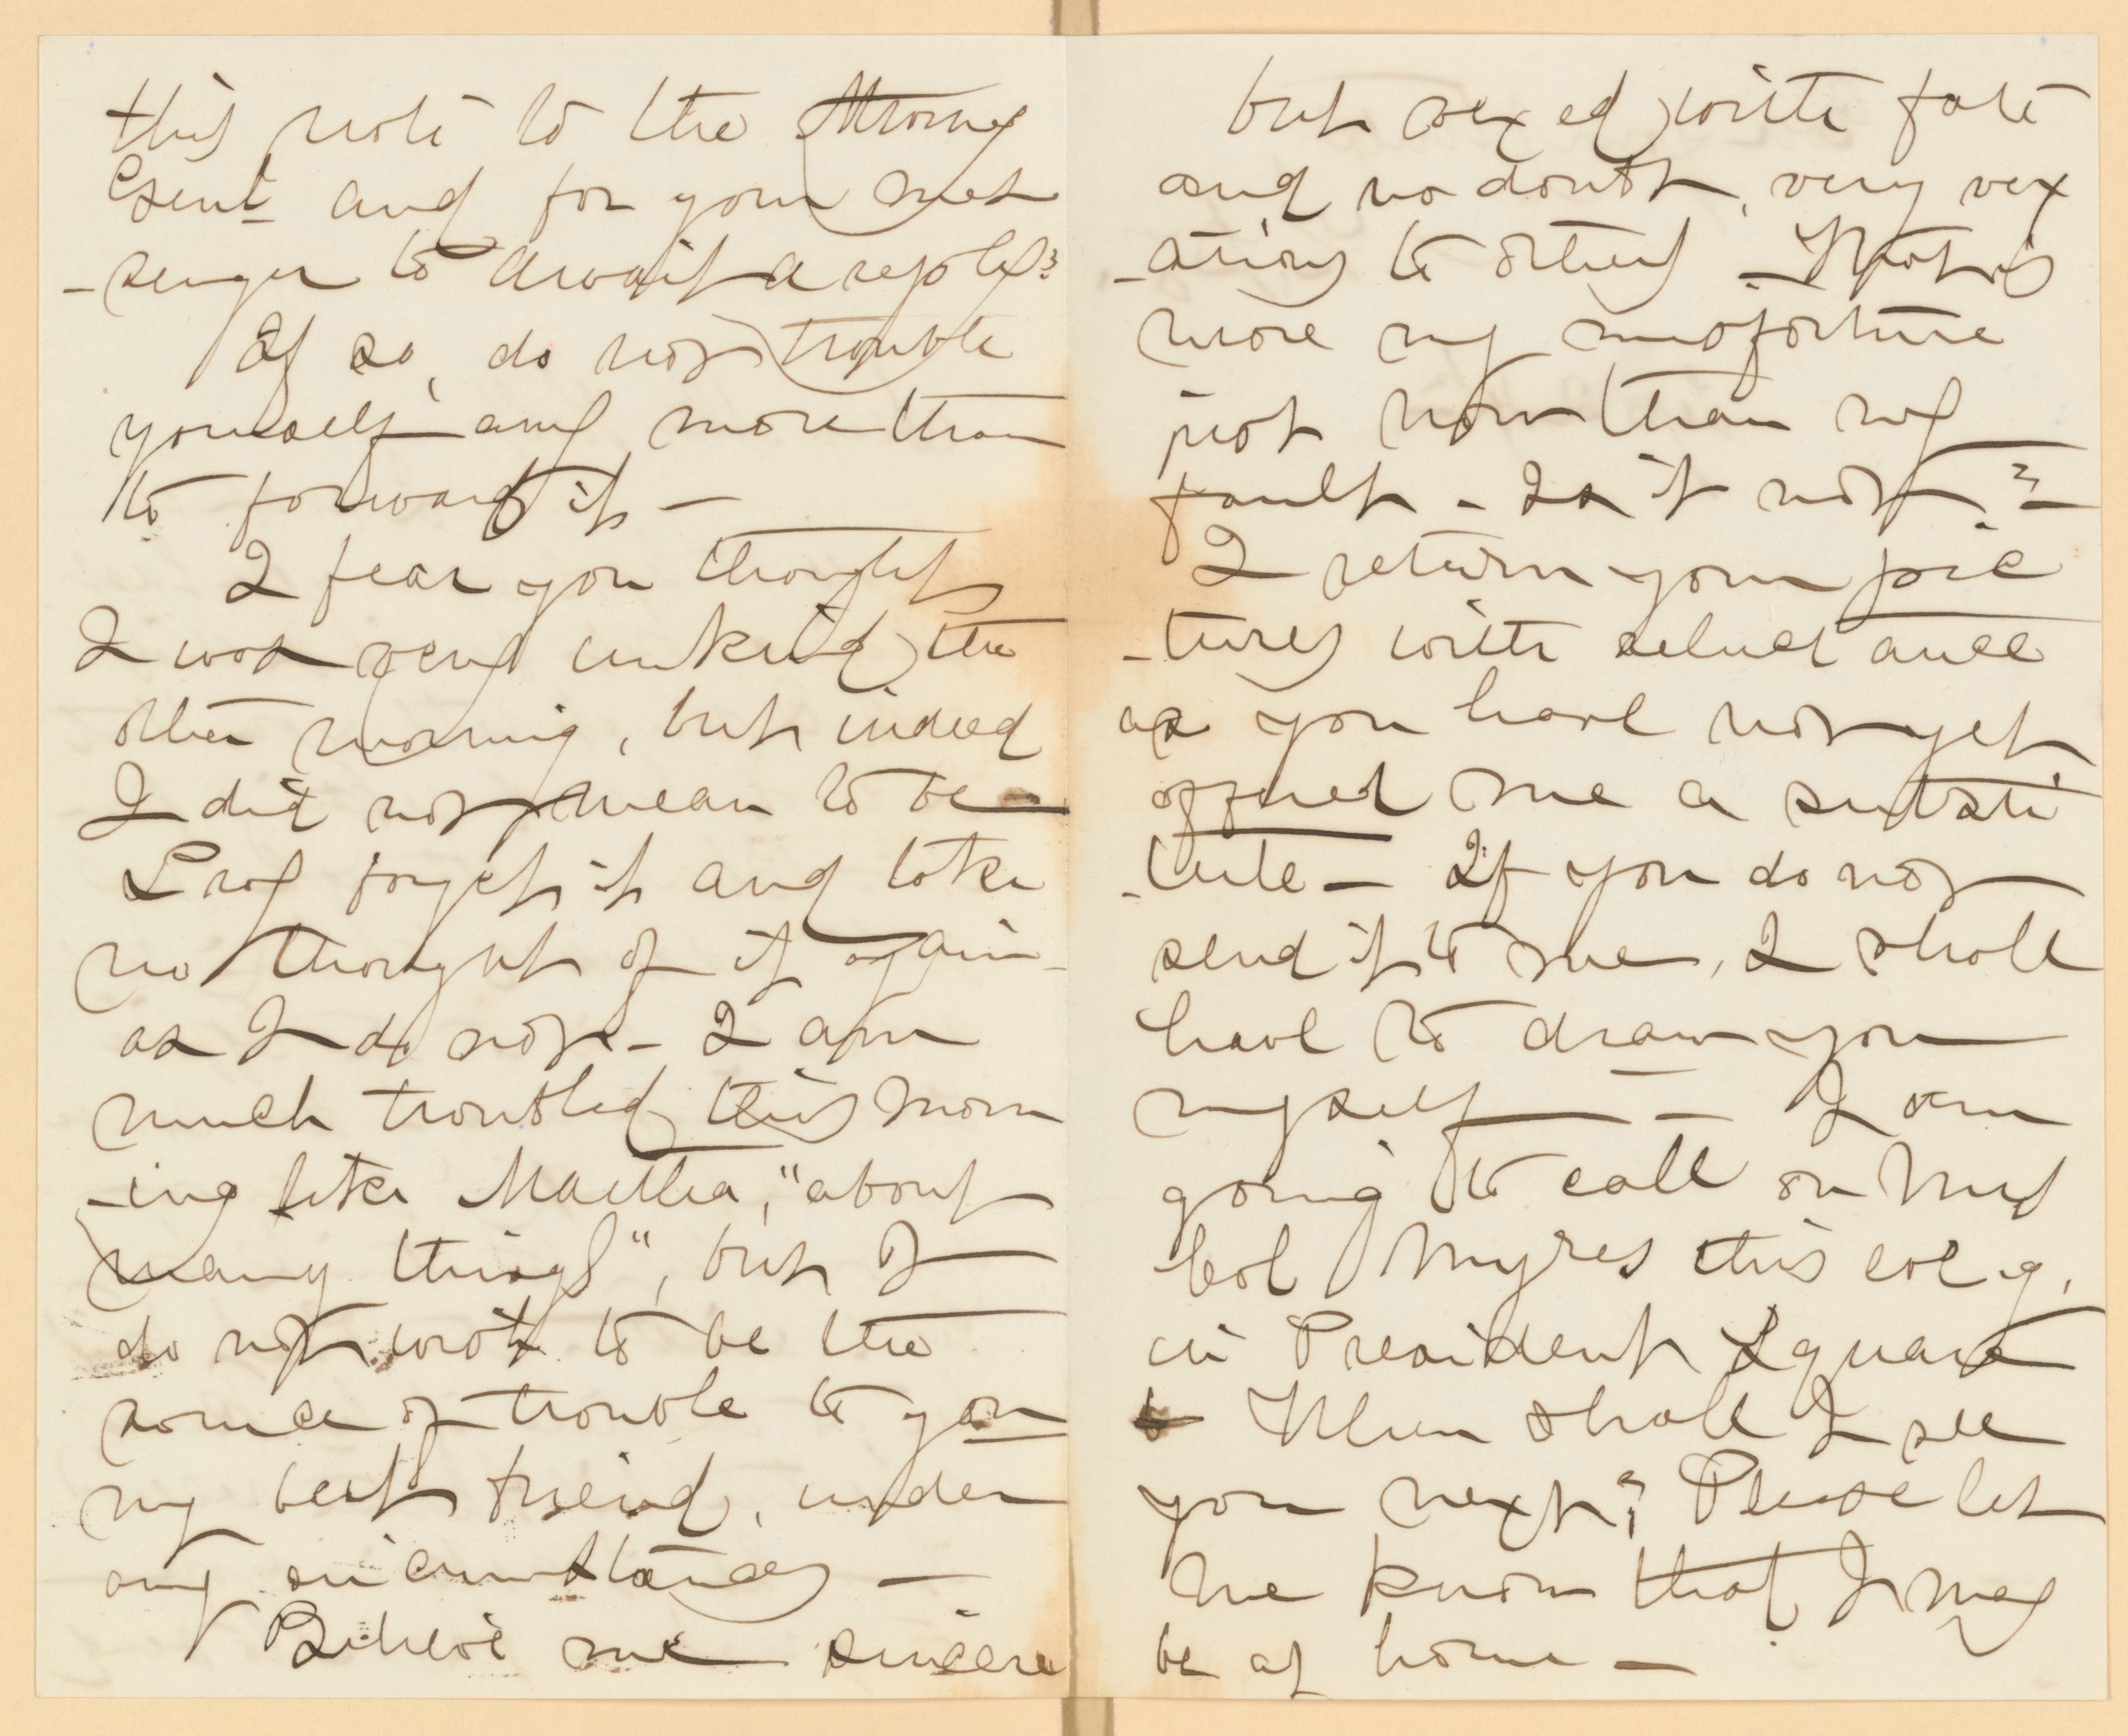 this note to the Attorney
Genl and for your mes
-senger to await a reply?
If so, do not trouble
yourself any more than
to forward it –
I fear you thought
I was very unkind the
other morning, but indeed
I did not mean to be
Pray forget it and take
no thought of it again –
as I do not – I am
much troubled this morn
-ing like Martha, "about
many things", but I
do not want to be the
source of trouble to you
my best friend, under
any circumstances –
Believe me sincere
but vexed with fate
and no doubt, very vex
-atious to others – That is
more my misfortune
just now than my
fault – Is it not? –
I return your pic
-tures with reluctance
as you have not yet
offered me a substi
-tute – If you do not
send it to me, I shall
have to draw you
myself – I am
going to call on Mrs
Col Myres this eve'g,
in President Square
When shall I see
you next? Please let
me know that I may
be at home –